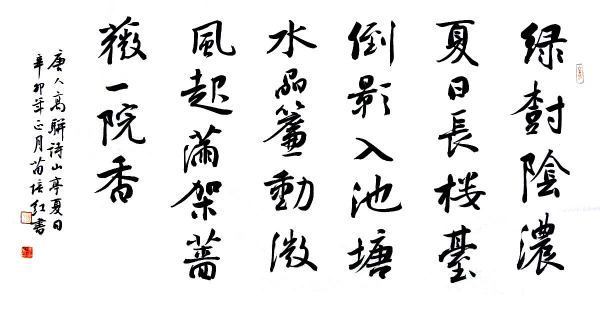 绿樹陰濃
夏日長楼臺
倒影入池塘
水晶簾動微
風起滿架薔
薇一院香
唐人高駢诗山亭夏日
辛卯年正月苗培红書